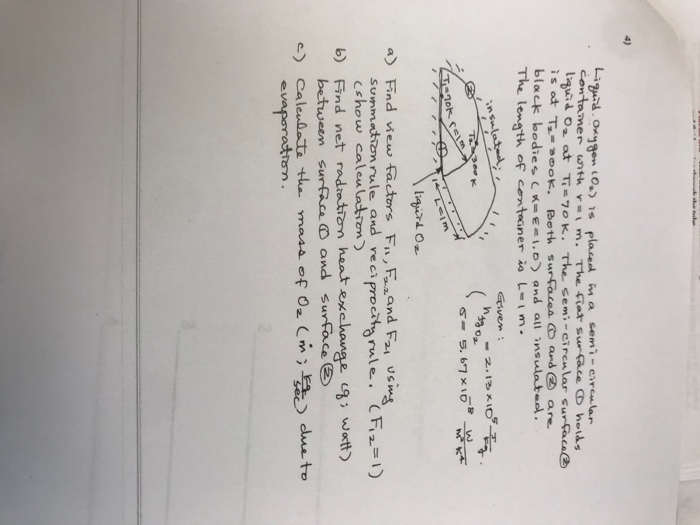 4)
Liquid Oxygen (O2) is placed in a semi-circular
container with r=1 m. The flat surface ① holds
liquid O2 at T1=70K. The semi-circular surface ②
is at T2=300K. Both surfaces ① and ② are
black bodies (α=ε=1.0) and all insulated.
The length of container is L=1m.
insulated;
②
T2=300K
r=1m
T1=70K
①
L=1m
liquid O2
Given:
( hfgO2 = 2.13×10⁵ J/kg.
σ = 5.67×10⁻⁸ W/m²K⁴
a) Find view factors F11, F22 and F21 using
summation rule and reciprocity rule. (F12=1)
(show calculation)
b) Find net radiation heat exchange (q; watt)
between surface ① and surface ②
c) Calculate the mass of O2 (ṁ; kg/sec) due to
evaporation.